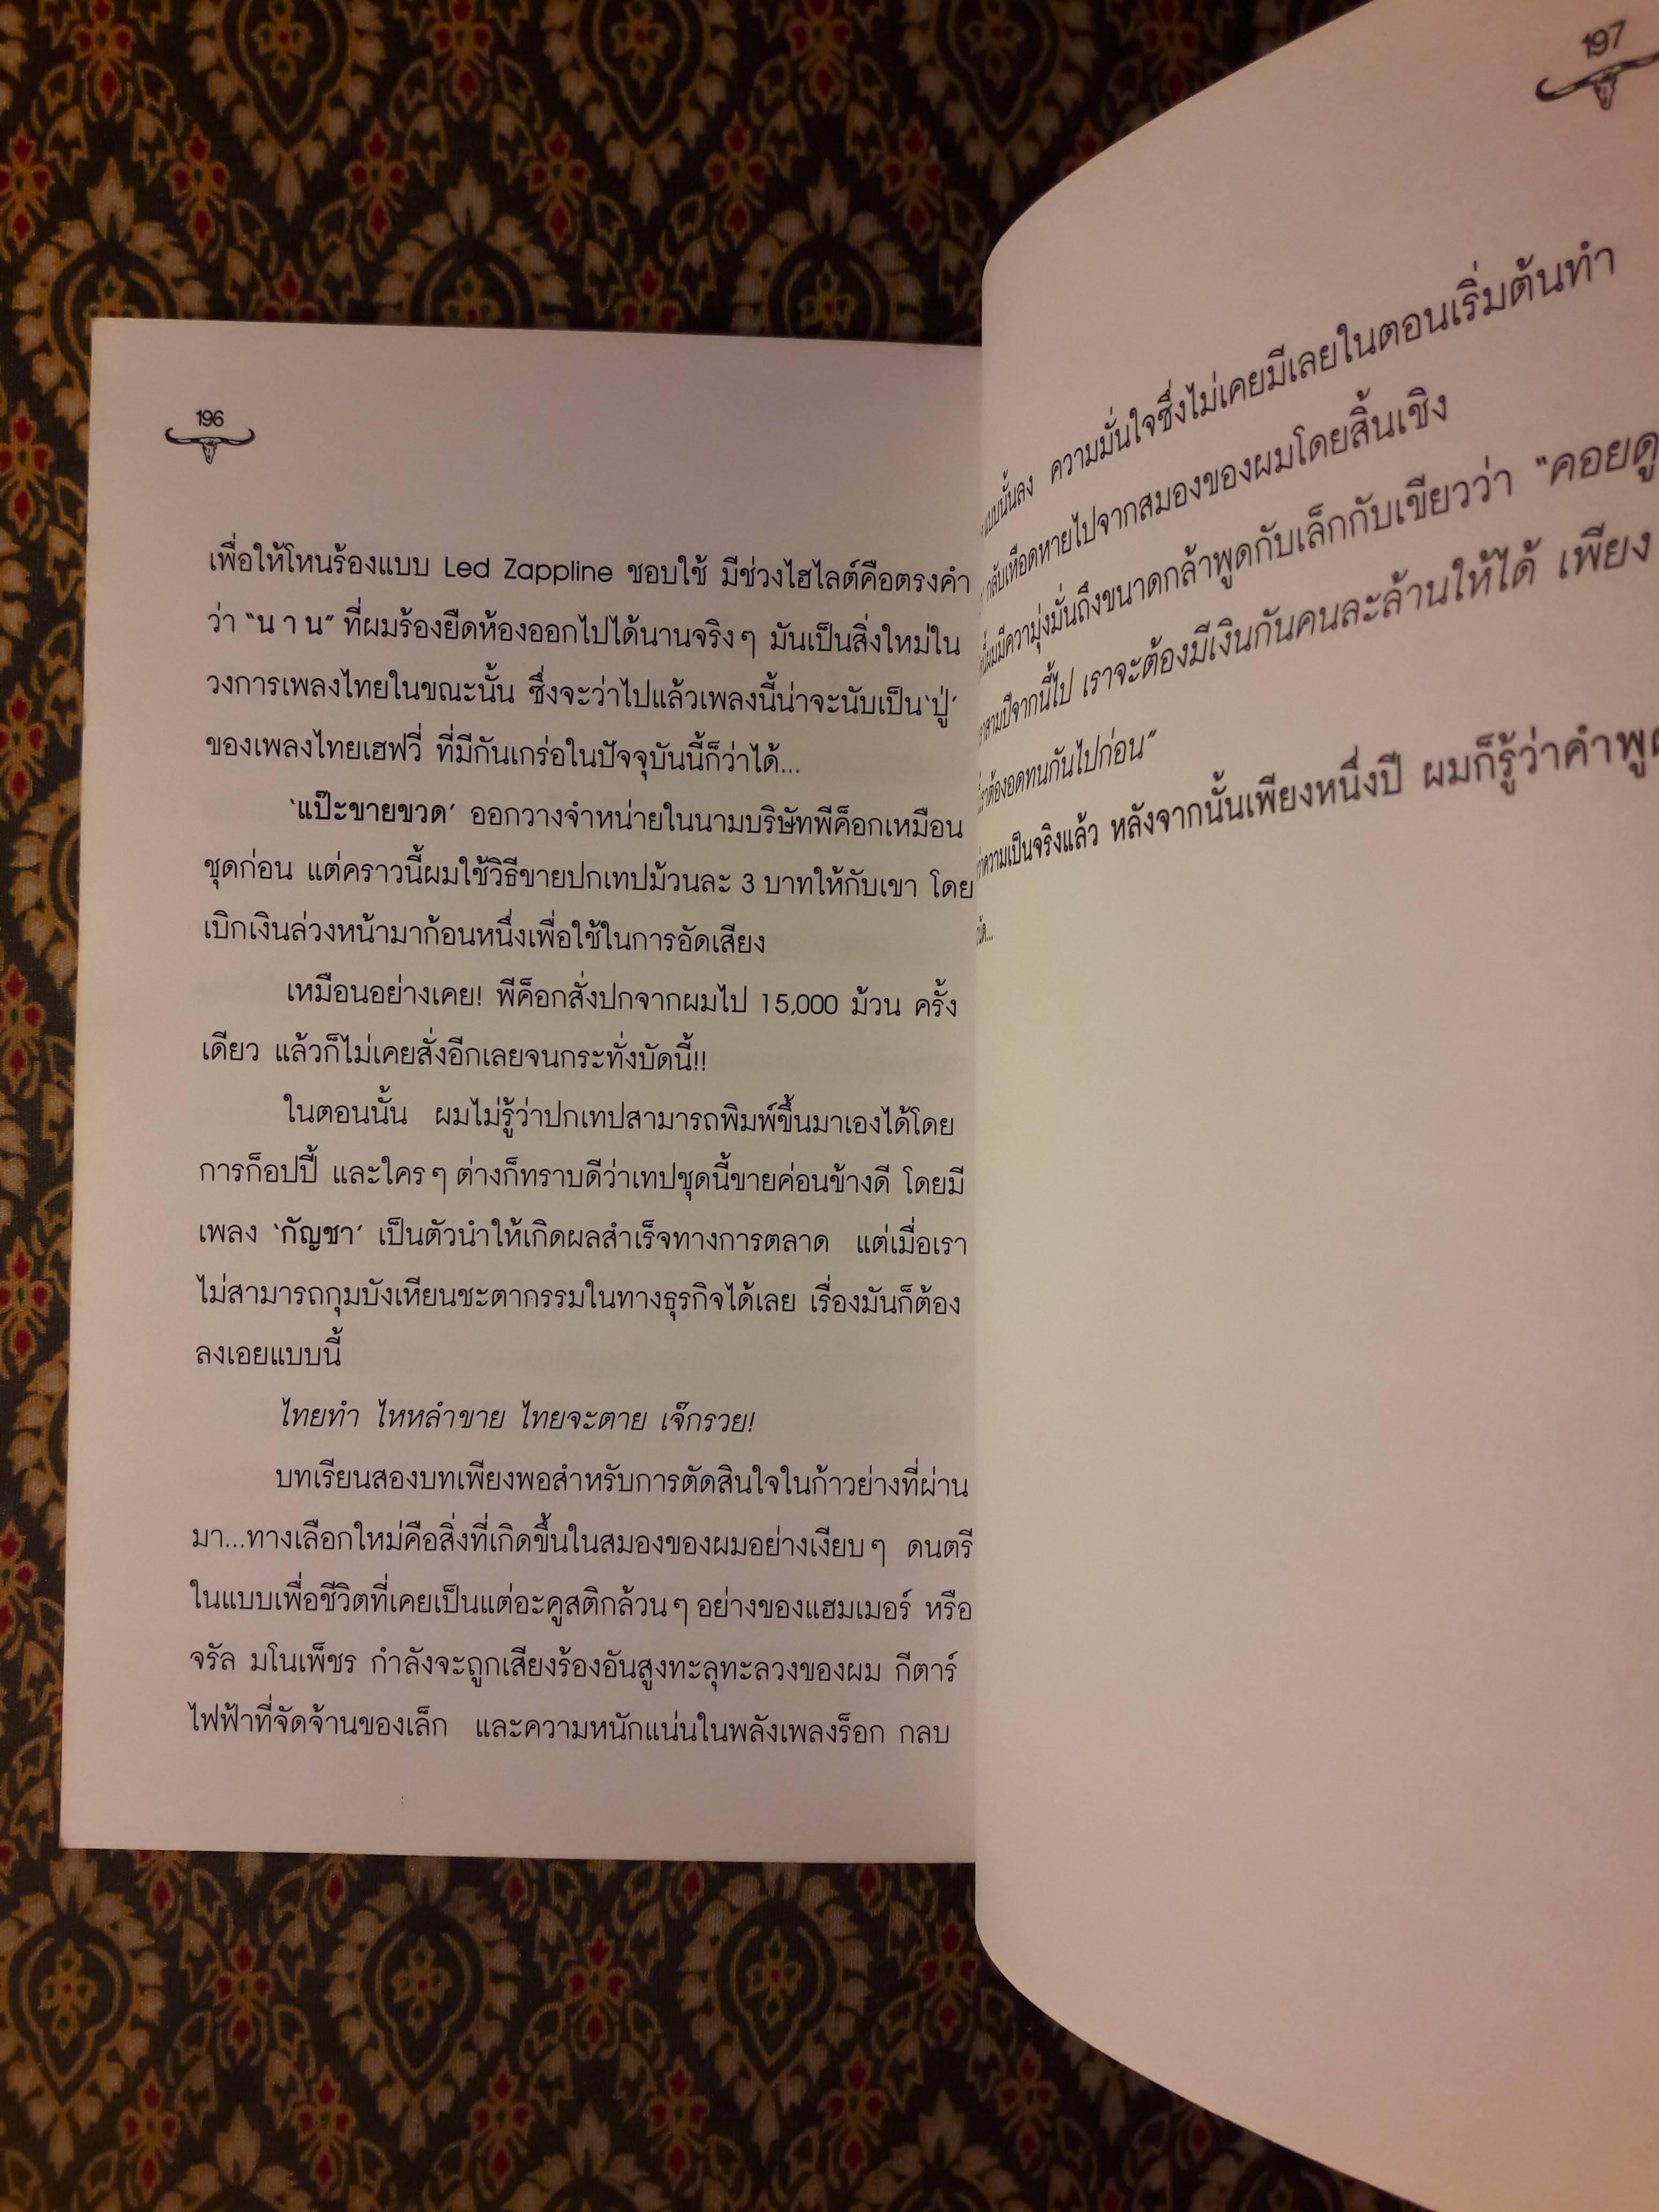 196
เพื่อให้โหนร้องแบบ Led Zappline ชอบใช้ มีช่วงไฮไลต์คือตรงคำ
ว่า “น า น” ที่ผมร้องยืดห้องออกไปได้นานจริงๆ มันเป็นสิ่งใหม่ใน
วงการเพลงไทยในขณะนั้น ซึ่งจะว่าไปแล้วเพลงนี้น่าจะนับเป็น‘ปู่’
ของเพลงไทยเฮฟวี่ ที่มีกันเกร่อในปัจจุบันนี้ก็ว่าได้...
‘แป๊ะขายขวด’ ออกวางจำหน่ายในนามบริษัทพีค็อกเหมือน
ชุดก่อน แต่คราวนี้ผมใช้วิธีขายปกเทปม้วนละ 3 บาทให้กับเขา โดย
เบิกเงินล่วงหน้ามาก้อนหนึ่งเพื่อใช้ในการอัดเสียง
เหมือนอย่างเคย! พีค็อกสั่งปกจากผมไป 15,000 ม้วน ครั้ง
เดียว แล้วก็ไม่เคยสั่งอีกเลยจนกระทั่งบัดนี้!!
ในตอนนั้น ผมไม่รู้ว่าปกเทปสามารถพิมพ์ขึ้นมาเองได้โดย
การก็อปปี้ และใครๆ ต่างก็ทราบดีว่าเทปชุดนี้ขายค่อนข้างดี โดยมี
เพลง ‘กัญชา’ เป็นตัวนำให้เกิดผลสำเร็จทางการตลาด แต่เมื่อเรา
ไม่สามารถกุมบังเหียนชะตากรรมในทางธุรกิจได้เลย เรื่องมันก็ต้อง
ลงเอยแบบนี้
ไทยทำ ไหหลำขาย ไทยจะตาย เจ๊กรวย!
บทเรียนสองบทเพียงพอสำหรับการตัดสินใจในก้าวย่างที่ผ่าน
มา...ทางเลือกใหม่คือสิ่งที่เกิดขึ้นในสมองของผมอย่างเงียบๆ ดนตรี
ในแบบเพื่อชีวิตที่เคยเป็นแต่อะคูสติกล้วนๆ อย่างของแฮมเมอร์ หรือ
จรัล มโนเพ็ชร กำลังจะถูกเสียงร้องอันสูงทะลุทะลวงของผม กีตาร์
ไฟฟ้าที่จัดจ้านของเล็ก และความหนักแน่นในพลังเพลงร็อก กลบ
197
แบบนั้นลง ความมั่นใจซึ่งไม่เคยมีเลยในตอนเริ่มต้นทำ
กลับเหือดหายไปจากสมองของผมโดยสิ้นเชิง
ผมมีความุ่งมั่นถึงขนาดกล้าพูดกับเล็กกับเขียวว่า “คอยดู
สามปีจากนี้ไป เราจะต้องมีเงินกันคนละล้านให้ได้ เพียง
ต้องอดทนกันไปก่อน”
ความเป็นจริงแล้ว หลังจากนั้นเพียงหนึ่งปี ผมก็รู้ว่าคำพูด